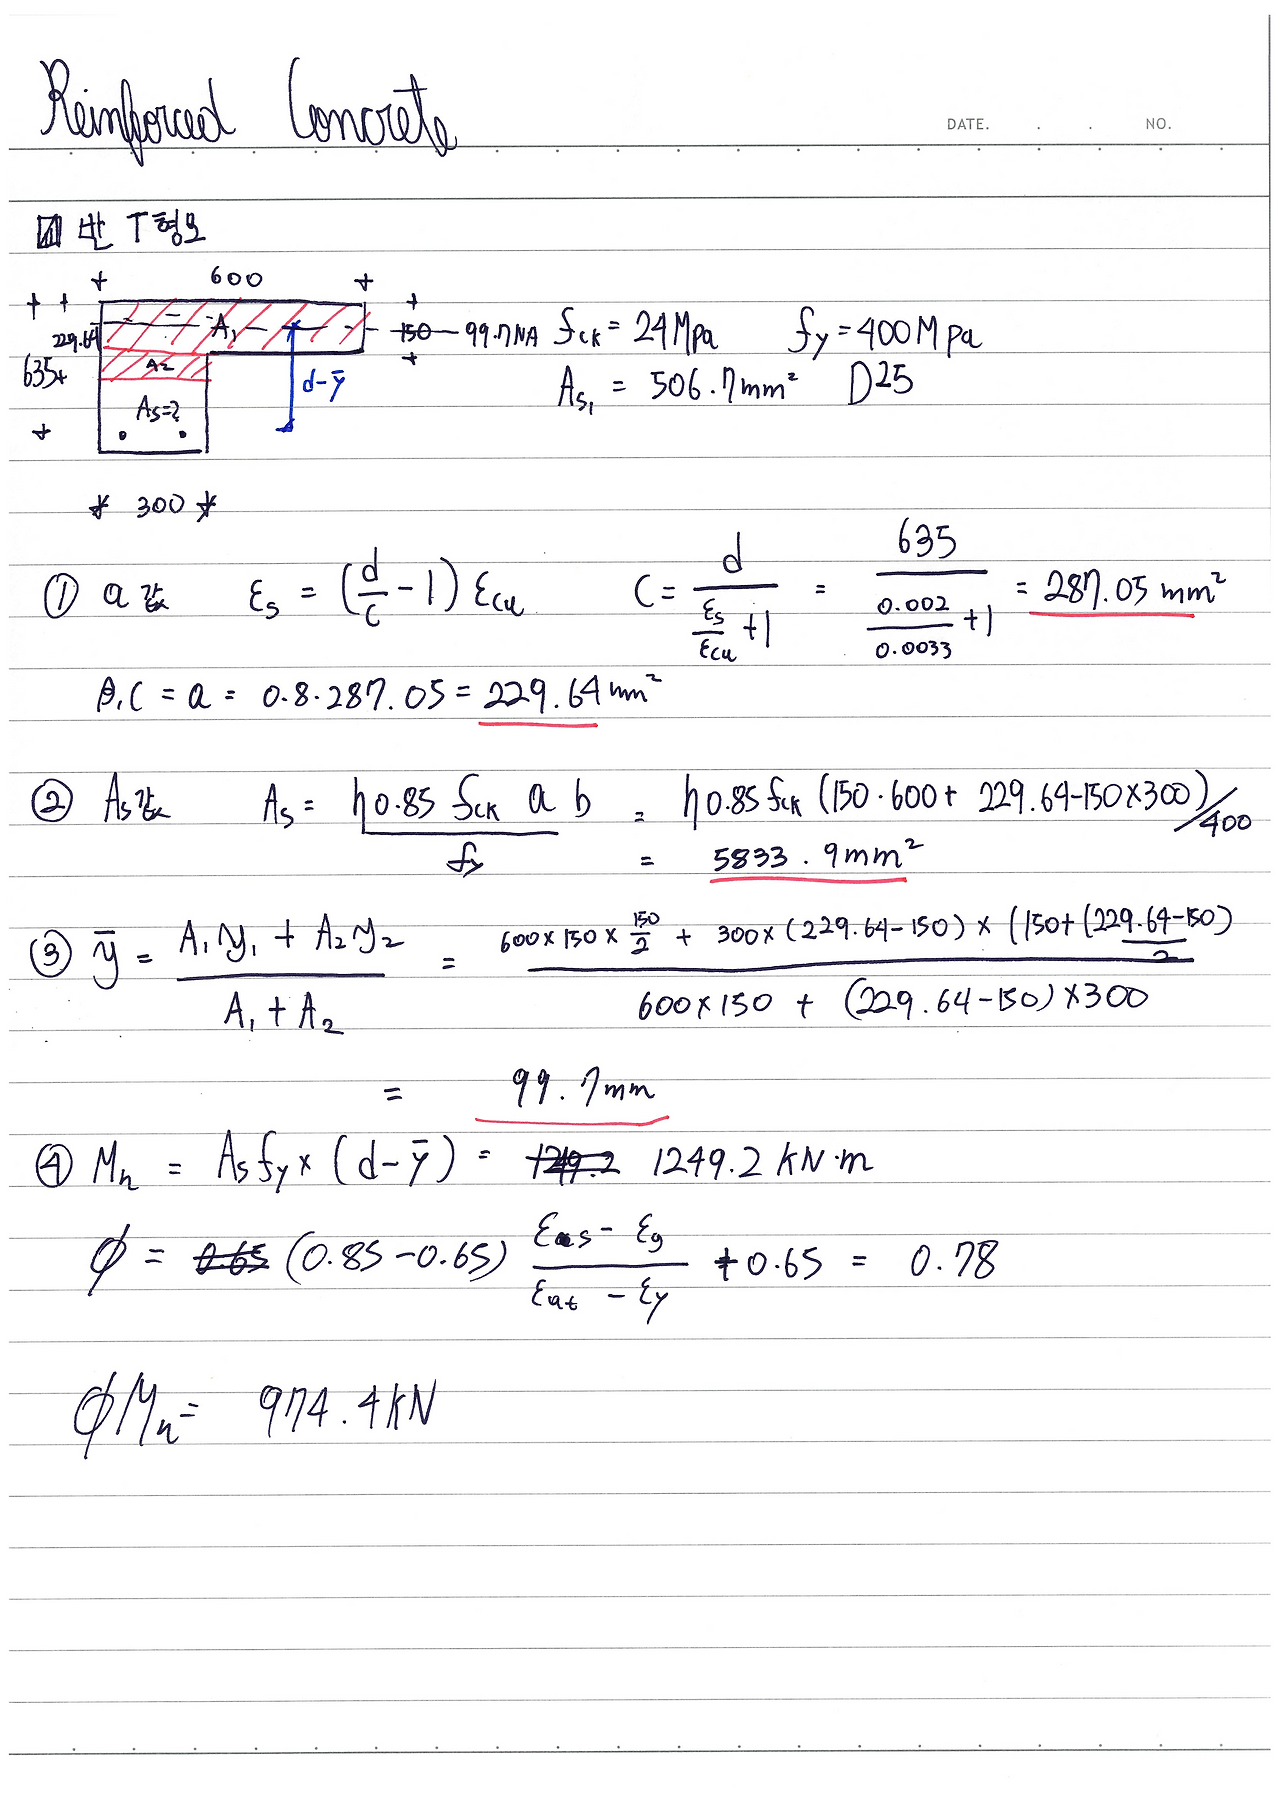 Reinforced Concrete
DATE. . . NO.
1 반 T형보
600
229.64 A₁ 150 99.7 NA fck = 24Mpa fy = 400Mpa
635 A₂ d-ȳ As₁ = 506.7mm² D25
As=?
300
① a값 εs = (d/c - 1) εcu C = d/(εs/εcu + 1) = 635/(0.002/0.0033 + 1) = 287.05 mm²
β₁C = a = 0.8·287.05 = 229.64 mm²
② As값 As = η0.85 fck a b / fy = η0.85 fck (150·600 + 229.64-150×300)/400
= 5833.9mm²
③ ȳ = (A₁y₁ + A₂y₂)/(A₁ + A₂) = (600×150×150/2 + 300×(229.64-150)×(150+(229.64-150)/2)/(600×150 + (229.64-150)×300)
= 99.7mm
④ Mn = Asfy×(d-ȳ) = 1249.2 1249.2 KN·m
ϕ = 0.65 (0.85-0.65) (εs - εy)/(εat - εy) + 0.65 = 0.78
ϕMn = 974.4KN